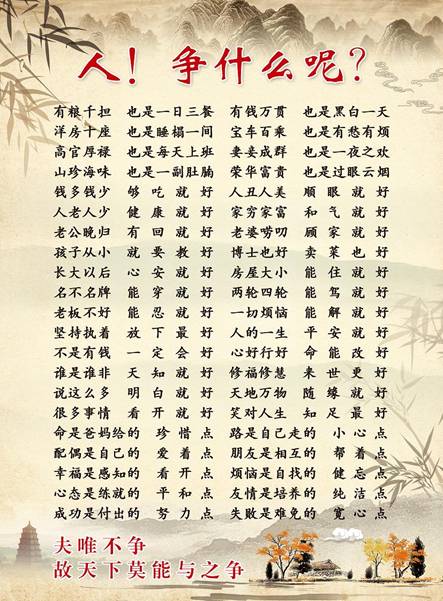 人！争什么呢？
有粮千担 也是一日三餐 有钱万贯 也是黑白一天
洋房十座 也是睡榻一间 宝车百乘 也是有愁有烦
高官厚禄 也是每天上班 妻妾成群 也是一夜之欢
山珍海味 也是一副肚腩 荣华富贵 也是过眼云烟
钱多钱少 够吃就好 人丑人美 顺眼就好
人老人少 健康就好 家穷家富 和气就好
老公晚归 有回就好 老婆唠叨 顾家就好
孩子从小 就要教好 博士也好 卖菜也好
长大以后 心安就好 房屋大小 能住就好
名不名牌 能穿就好 两轮四轮 能驾就好
老板不好 能忍就好 一切烦恼 能解就好
坚持执着 放下最好 人的一生 平安就好
不是有钱 一定会好 心好行好 命能改好
谁是谁非 天知就好 修福修慧 来世更好
说这么多 明白就好 天地万物 随缘就好
很多事情 看开就好 笑对人生 知足最好
命是爸妈给的 珍惜点 路是自己走的 小心点
配偶是自己的 爱着点 朋友是相互的 帮着点
幸福是感知的 看开点 烦恼是自找的 健忘点
心态是练就的 平和点 友情是培养的 纯洁点
成功是付出的 努力点 失败是难免的 宽心点
夫唯不争
故天下莫能与之争